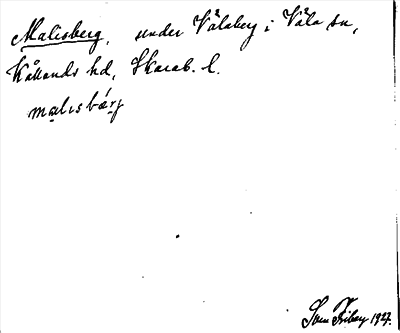 Malisberg, under Våleberg i Våla sn,
Kållands hd, Skarab. l.
malisbærj
Sven Friberg 1927.